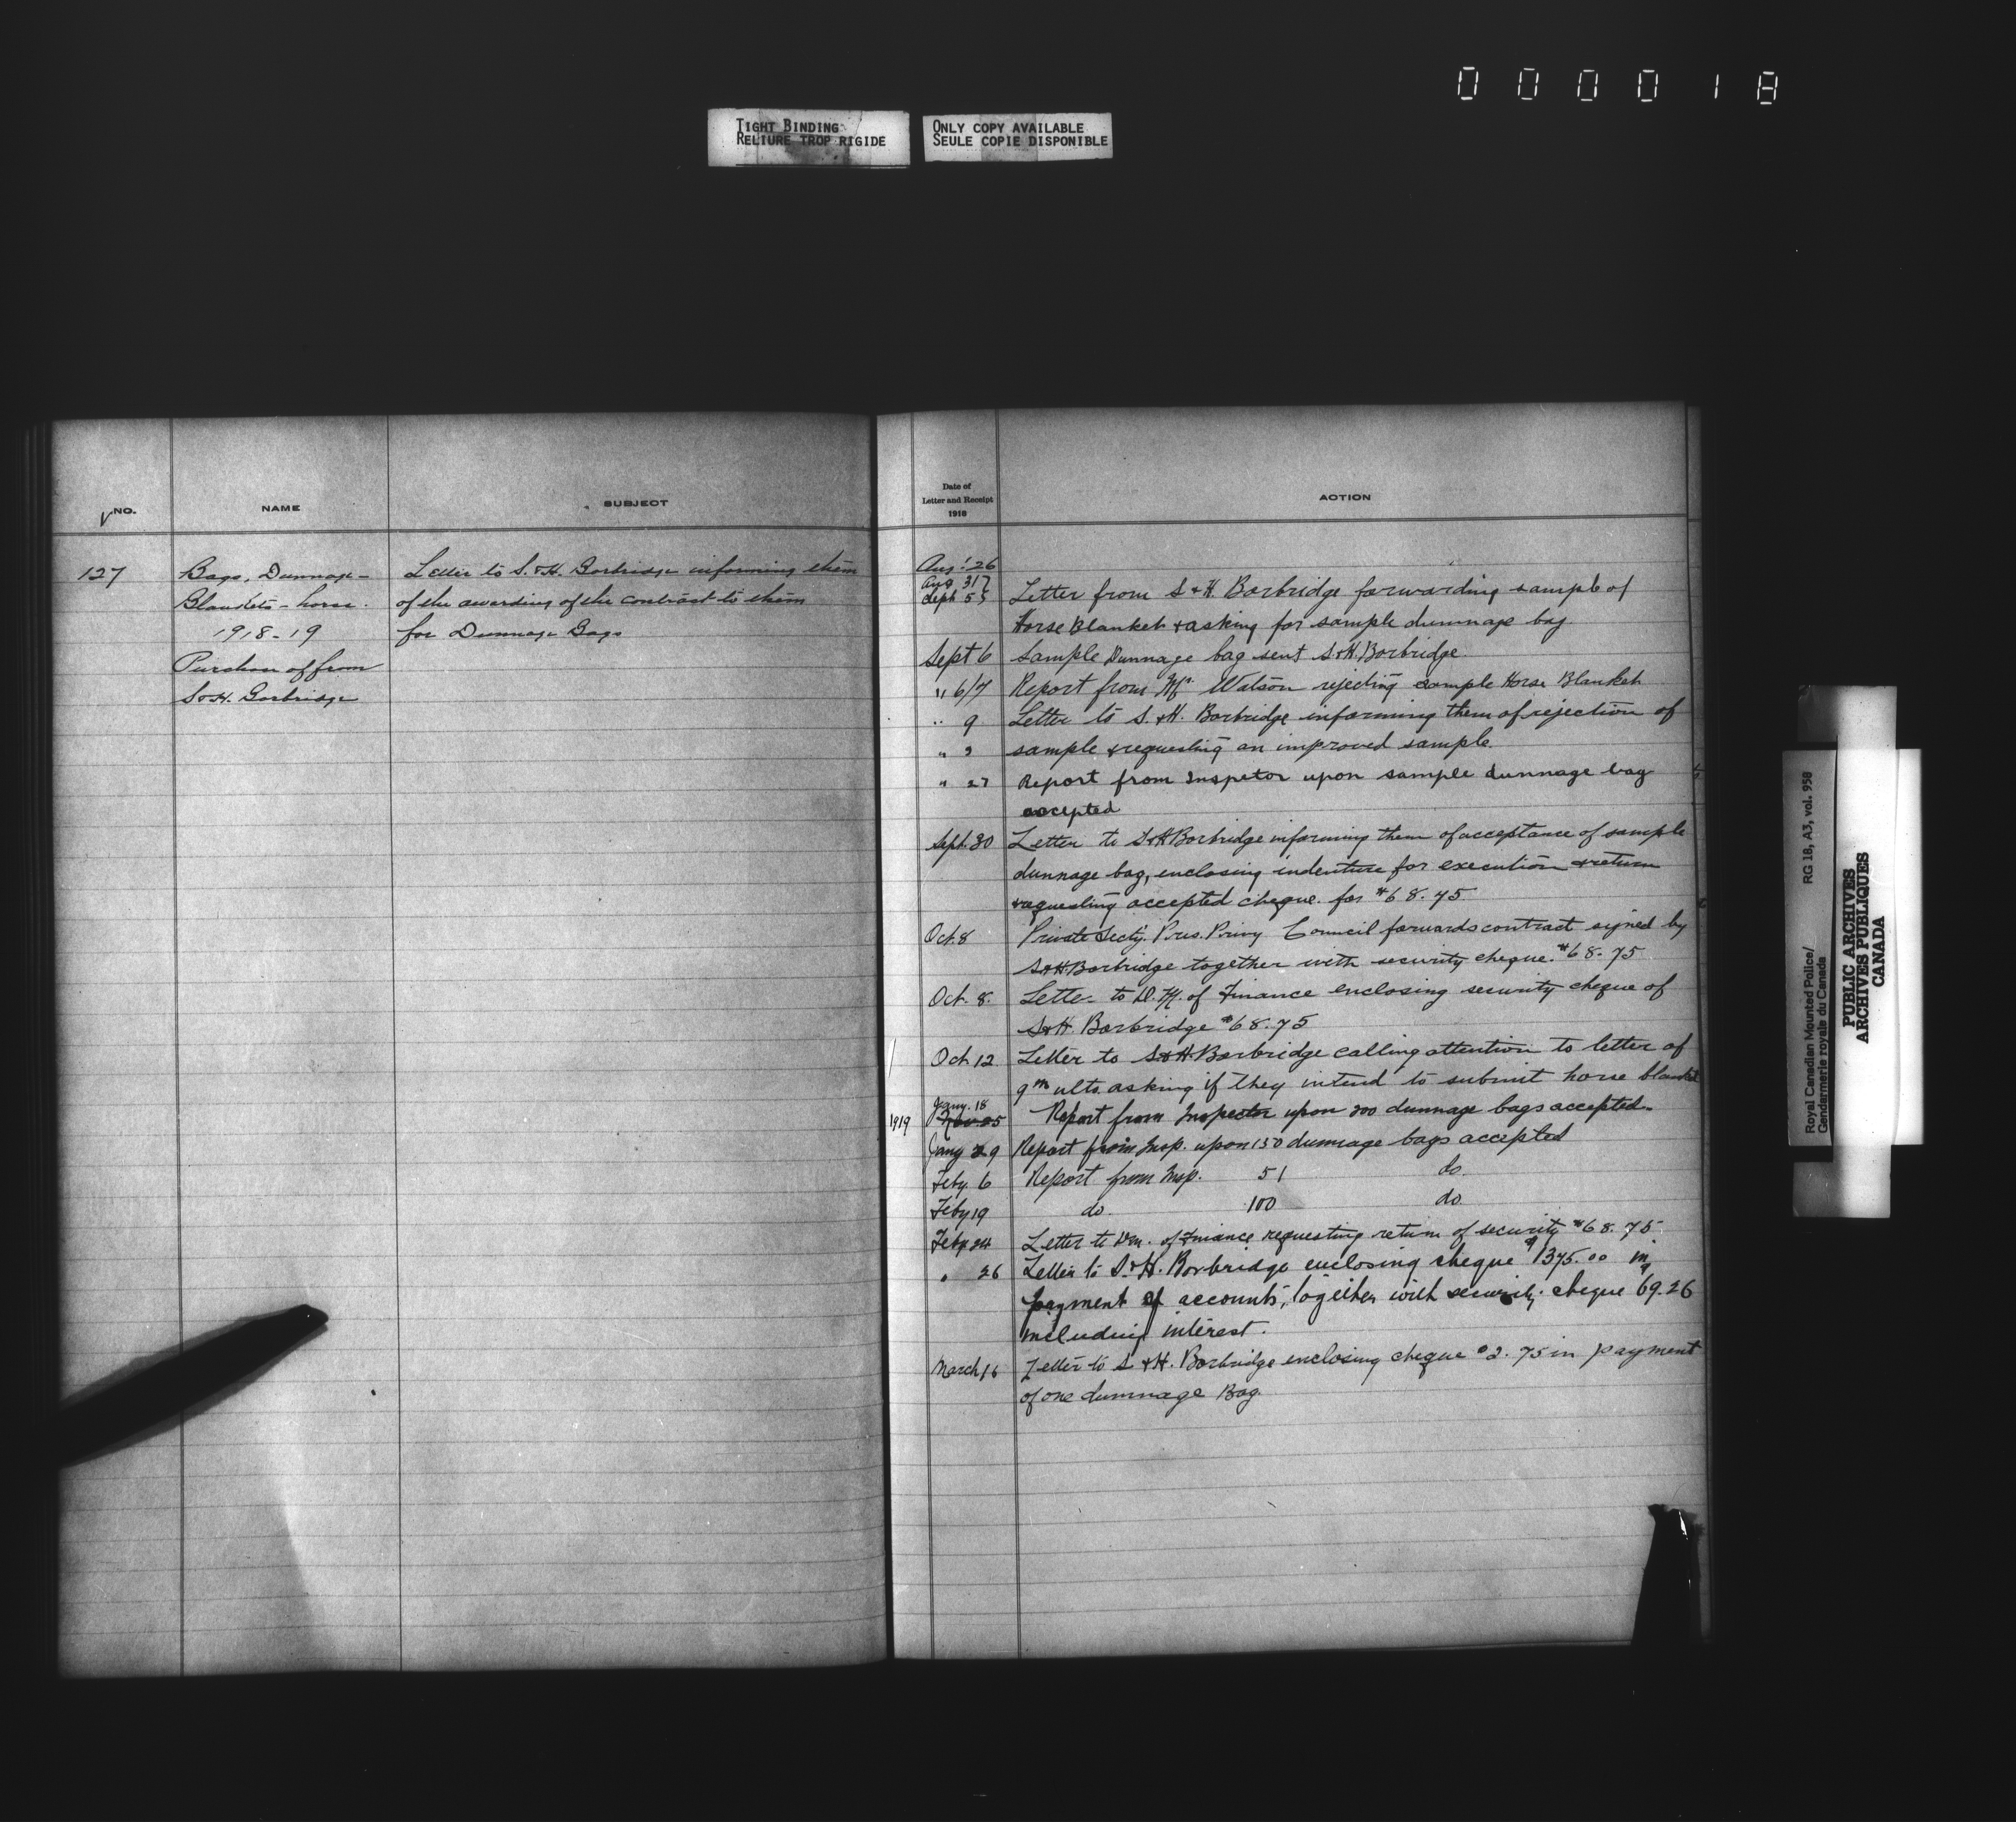 000018
TIGHT BINDING
RELIURE TROP RIGIDE
ONLY COPY AVAILABLE
SEULE COPIE DISPONIBLE
NO.
NAME
SUBJECT
127
Bags, Dunnage -
Blankets - horse.
1918-19
Purchase of from
S & H. Borbridge
Letter to S. & H. Borbridge informing them
of the awarding of the contract to them
for Dunnage Bags
Date of
Letter and Receipt
1918
ACTION
Aug: 26
Aug 31
Sept 5 Letter from S & H. Borbridge forwarding sample of
Horse Blanket & asking for sample dunnage bag
Sept 6 Sample Dunnage bag sent S. & H. Borbridge.
" 6/7 Report from Mr. Watson rejecting sample Horse Blanket
" 9 Letter to S. & H. Borbridge informing them of rejection of
" 9 sample & requesting an improved sample.
" 27 Report from Inspetor upon sample dunnage bag
accepted
Sept. 30 Letter to S & H Borbridge informing them of acceptance of sample
dunnage bag, enclosing indenture for execution & return
& requesting accepted cheque. for $68.75
Oct. 8 Private Secty. Pres. Privy Council forwards contract signed by
S & H. Borbridge together with security cheque. $68.75
Oct. 8. Letter to D. M. of Finance enclosing security cheque of
S & H. Borbridge $68.75
Oct. 12 Letter to S & H. Borbridge calling attention to letter of
9th ulto. asking if they intend to submit horse blanket
Jany. 18
1919 Nov 25 Report from Inspector upon 200 dunnage bags accepted.
Jany 29 Report from Insp. upon 150 dunnage bags accepted
Feby. 6 Report from Insp. 51 do.
Feby 19 do. 100 do.
Feby 24 Letter to Dm. of Finance requesting return of security $68.75.
" 26 Letter to S. & H. Borbridge enclosing cheque $1375.00 in
payment of accounts, together with security cheque $69.26
including interest.
March 16 Letter to S. & H. Borbridge enclosing cheque $2.75 in payment
of one dunnage Bag.
Royal Canadian Mounted Police/
Gendarmerie royale du Canada
RG 18, A3, vol. 958
PUBLIC ARCHIVES
ARCHIVES PUBLIQUES
CANADA